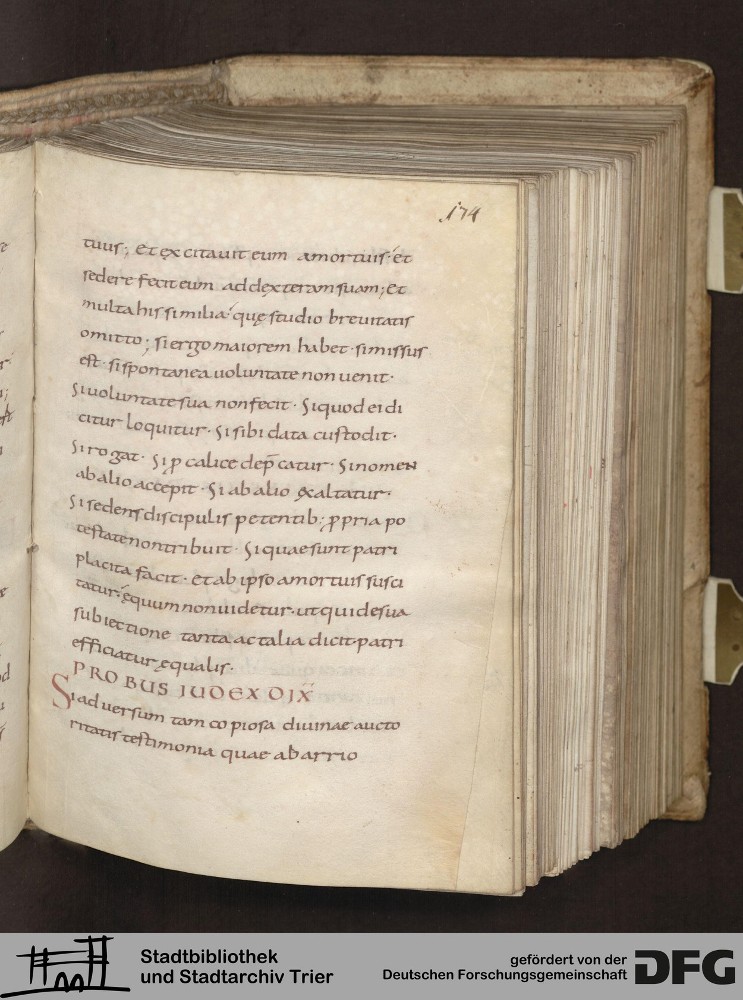 174
tuus; et excitavit eum amortuis· et
sedere fecit eum ad dexteram suam; et
multa his similia· quę studio breuitatis
omitto; si ergo maiorem habet· si missus
est· si spontanea uoluntate non uenit·
Si uoluntate sua non fecit· Si quod ei di
citur loquitur· Si sibi data custodit·
Si rogat· Si p̱ calice dep̄catur· Si nomen
ab alio accepit· Si ab alio exaltatur·
Si sedens discipulis petentib; p̱pria po
testate non tribuit· Si quae sunt patri
placita facit· et ab ipso amortuis susci
tatur· ęquum non uidetur· ut qui de sua
subiectione tanta ac talia dicit· patri
efficiatur ęqualis·
PROBUS IUDEX DIX̄
Si adversum tam copiosa divinae aucto
ritatis testimonia quae ab arrio
Stadtbibliothek
und Stadtarchiv Trier
gefördert von der
Deutschen Forschungsgemeinschaft
DFG